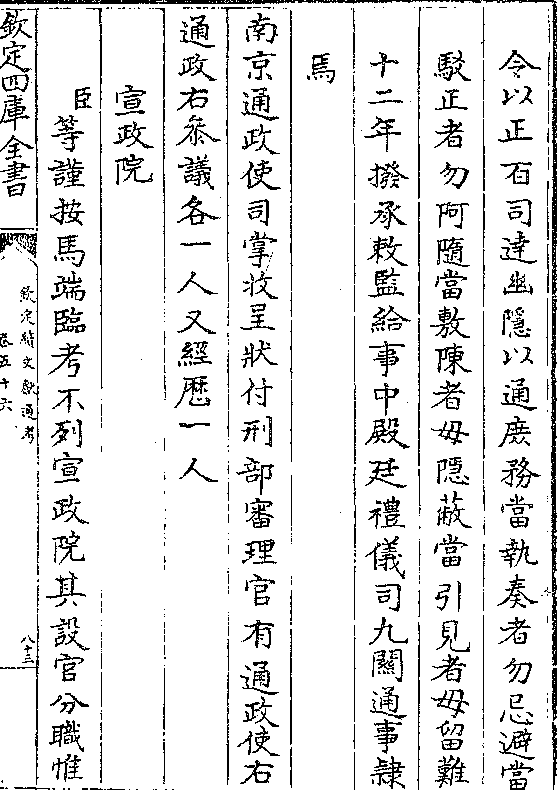 令以正百司達幽隱以通庶務當執奏者勿忌避當
駁正者勿阿隨當敷陳者毋隱蔽當引見者毋留難
十二年撥承敕監給事中殿廷禮儀司九關通事隸
焉
南京通政使司掌收呈狀付刑部審理官有通政使右
通政右叅議各一人又經歴一人
宣政院
臣等謹按馬端臨考不列宣政院其設官分職惟
欽定四庫全書
欽定續文獻通考
卷五十六
八十三